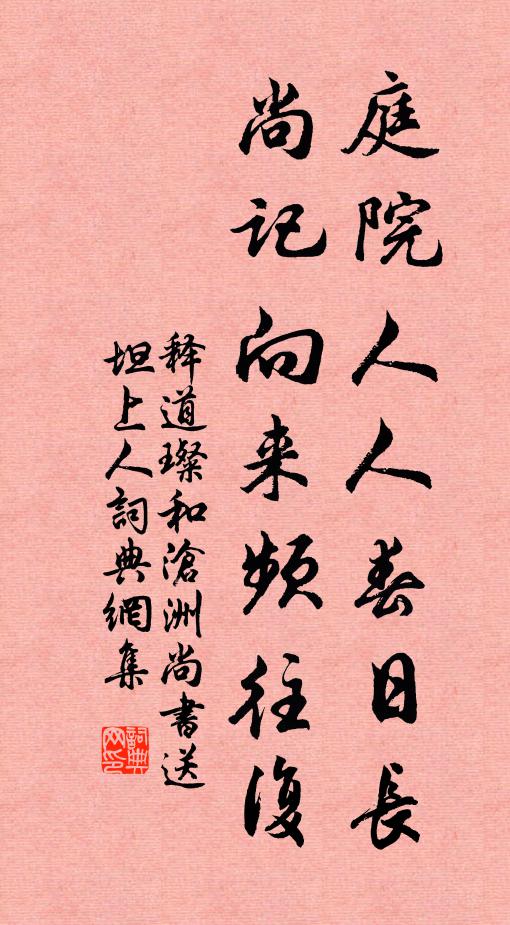 庭院人人春日長
尚记向来频往復
释道璨和滄洲尚書送
坦上人詞典網集
詞典网印